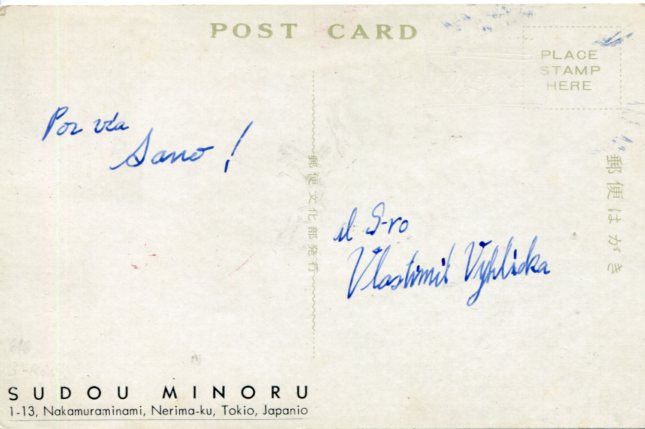 POST CARD
PLACE
STAMP
HERE
Por via
Sano!
郵便文化部発行
郵便はがき
al S-ro
Vlastimil Vyhlidka
SUDOU MINORU
1-13, Nakamuraminami, Nerima-ku, Tokio, Japanio